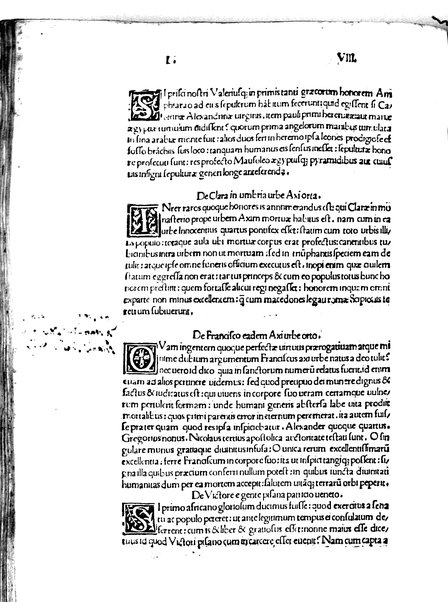 L. VIII.
SI prisci nostri Valeriusq; in primis tanti græcorum honorem Am
phiarao ad eius sepulcrum habitum fecerunt: quid egissent si Ca
terinæ Alexandrinæ uirginis, item pauli primi heremitæ mortuæ
ægyptæ tumulum uidissent? quorum prima angelorum manibus tumulata
in sina arabiæ monte fuit: alios duos seri in heremo ipsa leones prodigiose ef
fosso brachiis suis loco: tanquam humanus eis sensus inesset: sepulturæ hono
re prosecuti sunt: res profecto Mausoleo ægyptiisq; pyramidibus aut cuius
uis insigni sepulturæ genere longe anteferenda.
De Clara in umbria urbe Axi orta.
INter raros quoque honores is annumerandus est: qui Claræ in mo
nasterio prope urbem Axim mortuæ habitus est. nam cum in ea
urbe Innocentius quartus pontifex esset: statim cum toto urbis illi
us populo: totaque aula ubi mortuæ corpus erat profectus: canentibus tu
bicinibus intra urbem non ut mortuam: sed in triumphantis speciem eam de
tulit: atque ipse omne funeris officium executus est. inopi enim quæ diuitem
statum egressa non erat: tantus princeps & cum eo populus totus hunc ho
norem præstitit: quem fortasse alicui regi negasset: honorem inquam omni
ex parte non minus excellentem: q̃ cum macedones legati romæ Scipionis fe
retrum subiuerunt.
De Francisco eadem Axi urbe orto.
QVam ingentem quoque perfectæ uirtutis prærogatiuam atque mi
nime dubium argumentum Franciscus axi urbe natus a deo tulit?
nec uero id dico quia in sanctorum numerum relatus fuerit. id enim
etiam ad alios pertinere uidemus: sed quod præcipuo dei munere dignus &
factus & iudicatus est: qui uiuens in corpore suo ueram certamque uulne
rum pertulerit formam: unde humani generis abstersa labe uita prodiit
mortalibus: quos primi parentis error in æternum peremerat. ita autem fuis
se præter quam quod res ipsa inspiciebatur. Alexander quoque quartus.
Gregorius nonus. Nicolaus tertius apostolica auctoritate testati sunt. O sin
gulare munus gratiaque diuinitus infusa: O unica rerum excellentissimarum
excellentia: ferre Franciscum in corpore suo: ita ut inspici tangiq; possent: si
gna illa quibus præcium conferri nullum potest: in quibus iuncta diuinitati
humanitas dum per ea mortem accepit: salutem uitãq; terrarũ orbi peperit.
De Victore e gente pisana patritio ueneto.
SI primo africano gloriosum ducimus fuisse: quod exercitus a sena
tu ac populo peteret: ut ante legitimum tempus ei consulatum de-
ferrent: cum is & liber & gratiosus esset: nonne maius esse dice,
tur is id quod Victori pisano cum in carcere esset euenit? Nam cum capta a